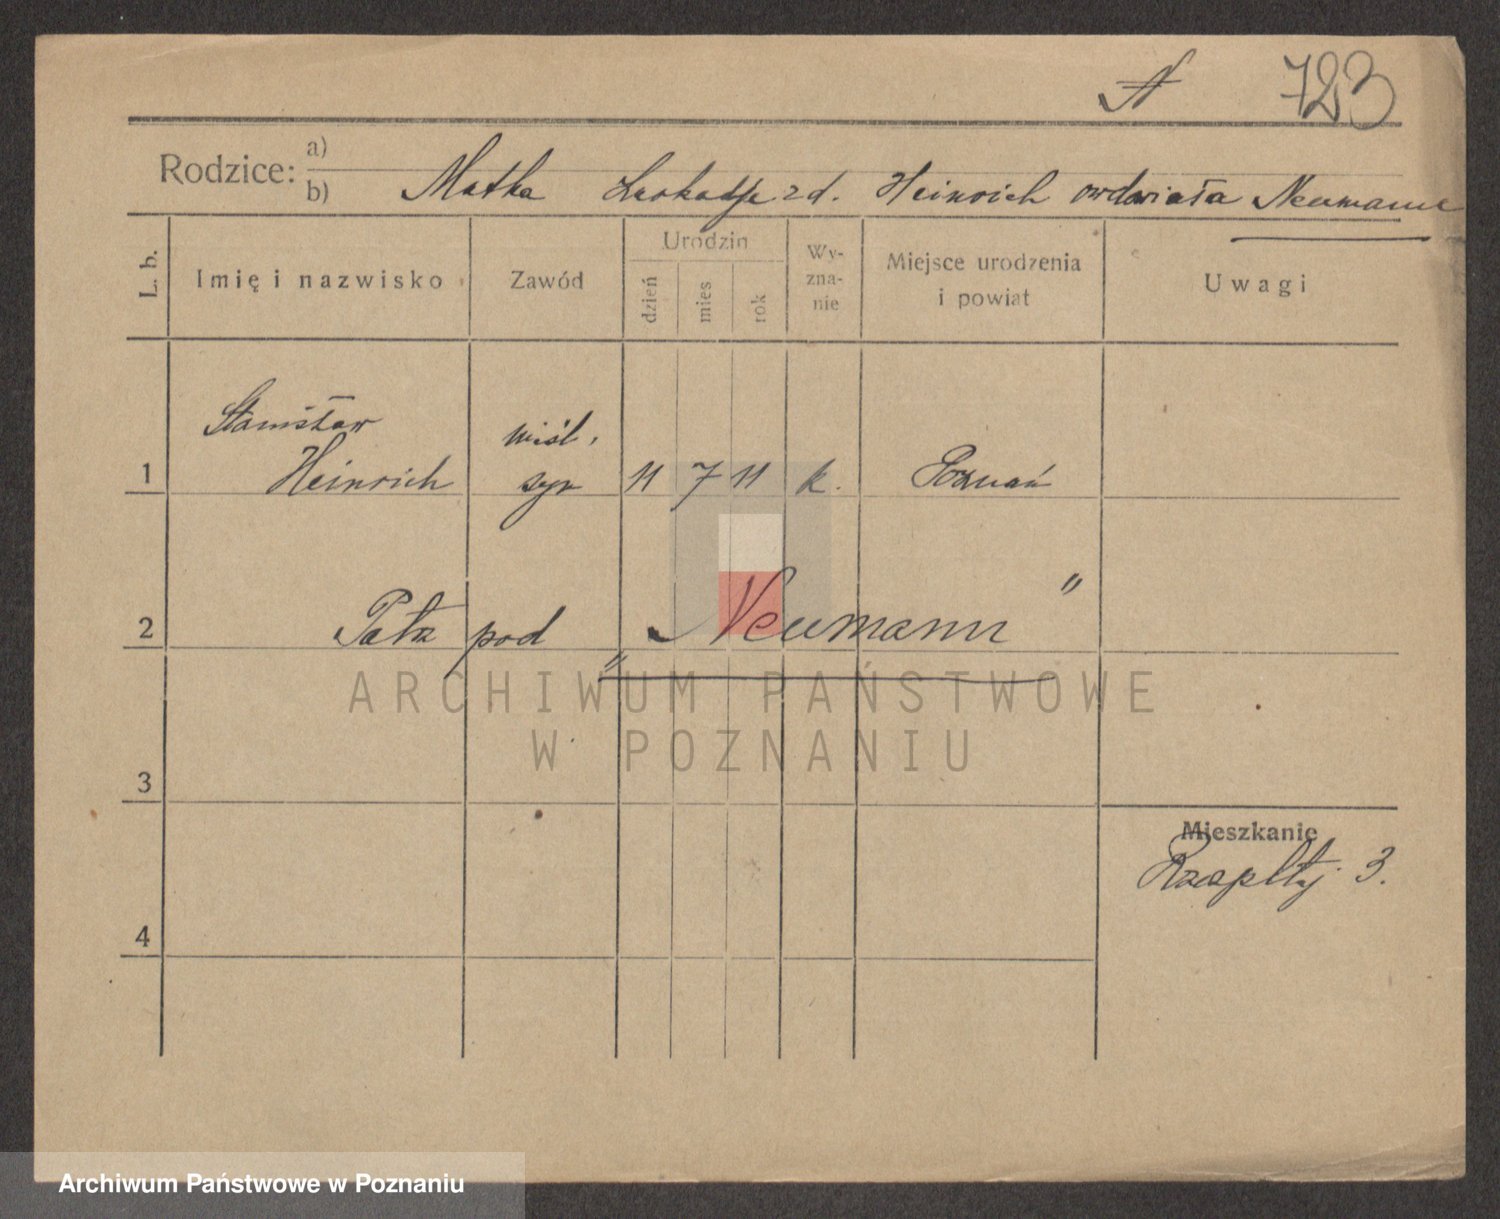 N 723
Rodzice: a)
b) Matka Leokadja zd. Heinrich owdowiała Neumann
L. b.
Imię i nazwisko
Zawód
Urodzin
dzień
mies
rok
Wy-
zna-
nie
Miejsce urodzenia
i powiat
Uwagi
Stanisław
1 Heinrich
syn 11 7 11 k. Poznań
2 Patrz pod „Neumann"
ARCHIWUM PAŃSTWOWE
W POZNANIU
3
Mieszkanie
Rzeapltej 3.
4
Archiwum Państwowe w Poznaniu